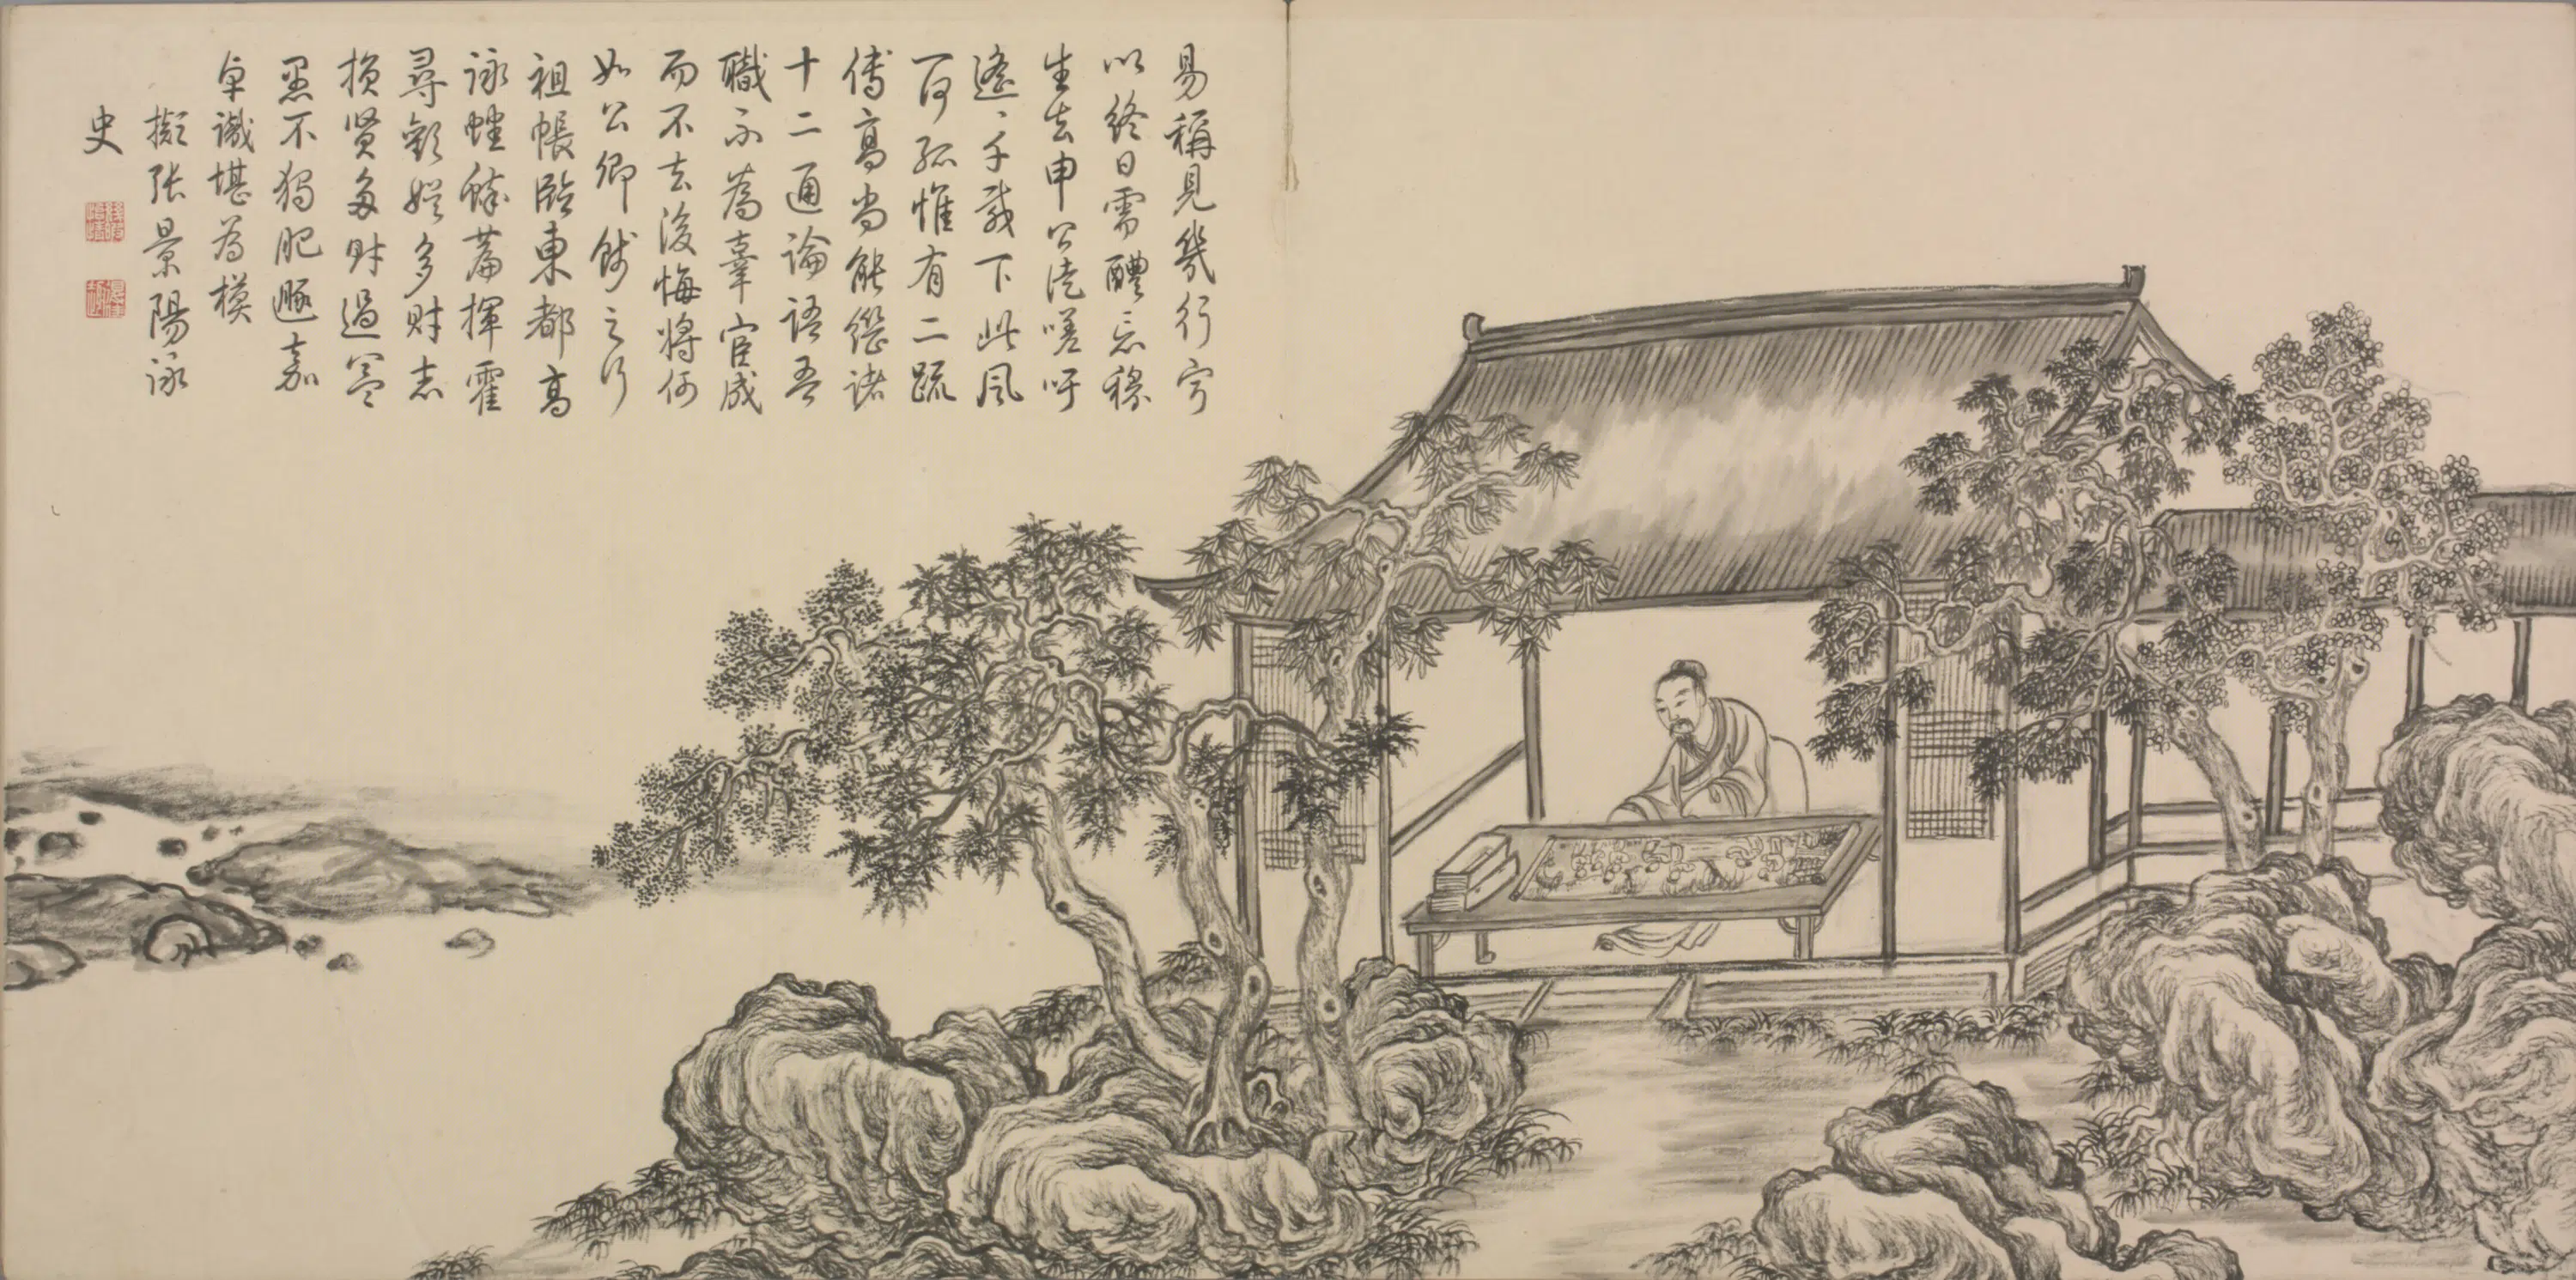 易稱見幾行寧
以終日需醴忘穆
生去申公徒嗟呼
遙〻千載下此風
一何孤惟有二疏
傅高尚能繼諸
十二通論語吾
職不為辜宦成
而不去後悔將何
如公卿餞之行
祖帳臨東都高
詠
尋歡娛多財志
損賢多財過益
愚不獨肥遯嘉
卓識堪為模
擬張景陽詠
史